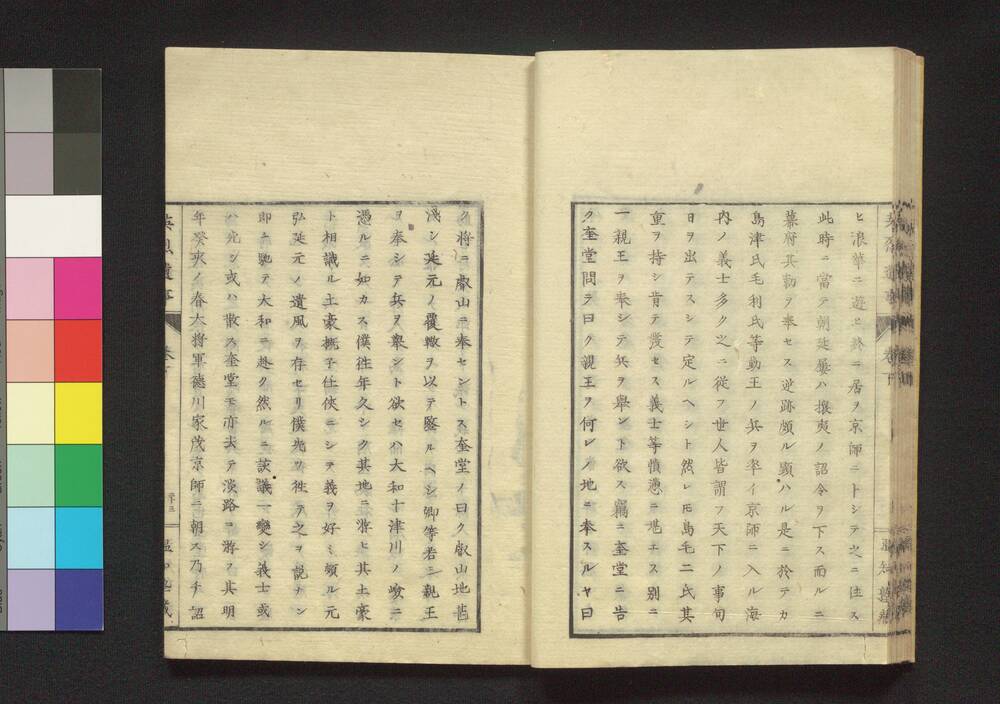 ヒ浪華ニ遊ヒ終ニ居ヲ京師ニトシテ之ニ住ス
此時ニ當テ朝廷屢ハ攘夷ノ詔令ヲ下ス而ルニ
幕府其勅ヲ奉セス逆跡頗ル顕ハル是ニ於テカ
島津氏毛利氏等勤王ノ兵ヲ率イ京師ニ入ル海
内ノ義士多ク之ニ從フ世人皆謂フ天下ノ事旬
日ヲ出テスシテ定ルヘシト然レ𪜈島毛二氏其
重ヲ持シ肯テ發セス義士等憤懣ニ堪エス別ニ
一親王ヲ奉シテ兵ヲ舉ント欲ス竊ニ奎堂ニ告
ク奎堂問テ曰ク親王ヲ何レノ地ニ奉スルヤ曰
ク將ニ叡山ニ奉セントス奎堂ノ曰ク叡山地甚
淺シ延元ノ覆轍ヲ以テ鑒ルヘシ卿等若シ親王
ヲ奉シテ兵ヲ舉ント欲セハ大和十津川ノ嶮ニ
憑ルニ如カス僕往年久シク其地ニ游ヒ其土豪
ト相識ル土豪概子任俠ニシテ義ヲ好ミ頗ル元
弘延元ノ遺風ヲ存セリ僕先ツ徃テ之ヲ說ナン
即ニ馳テ大和ニ赴ク然ルニ談議一變シ義士或
ハ死シ或ハ散ス奎堂モ亦去テ淡路ニ游フ其明
年癸亥ノ春大將軍德川家茂京師ニ朝ス乃チ詔